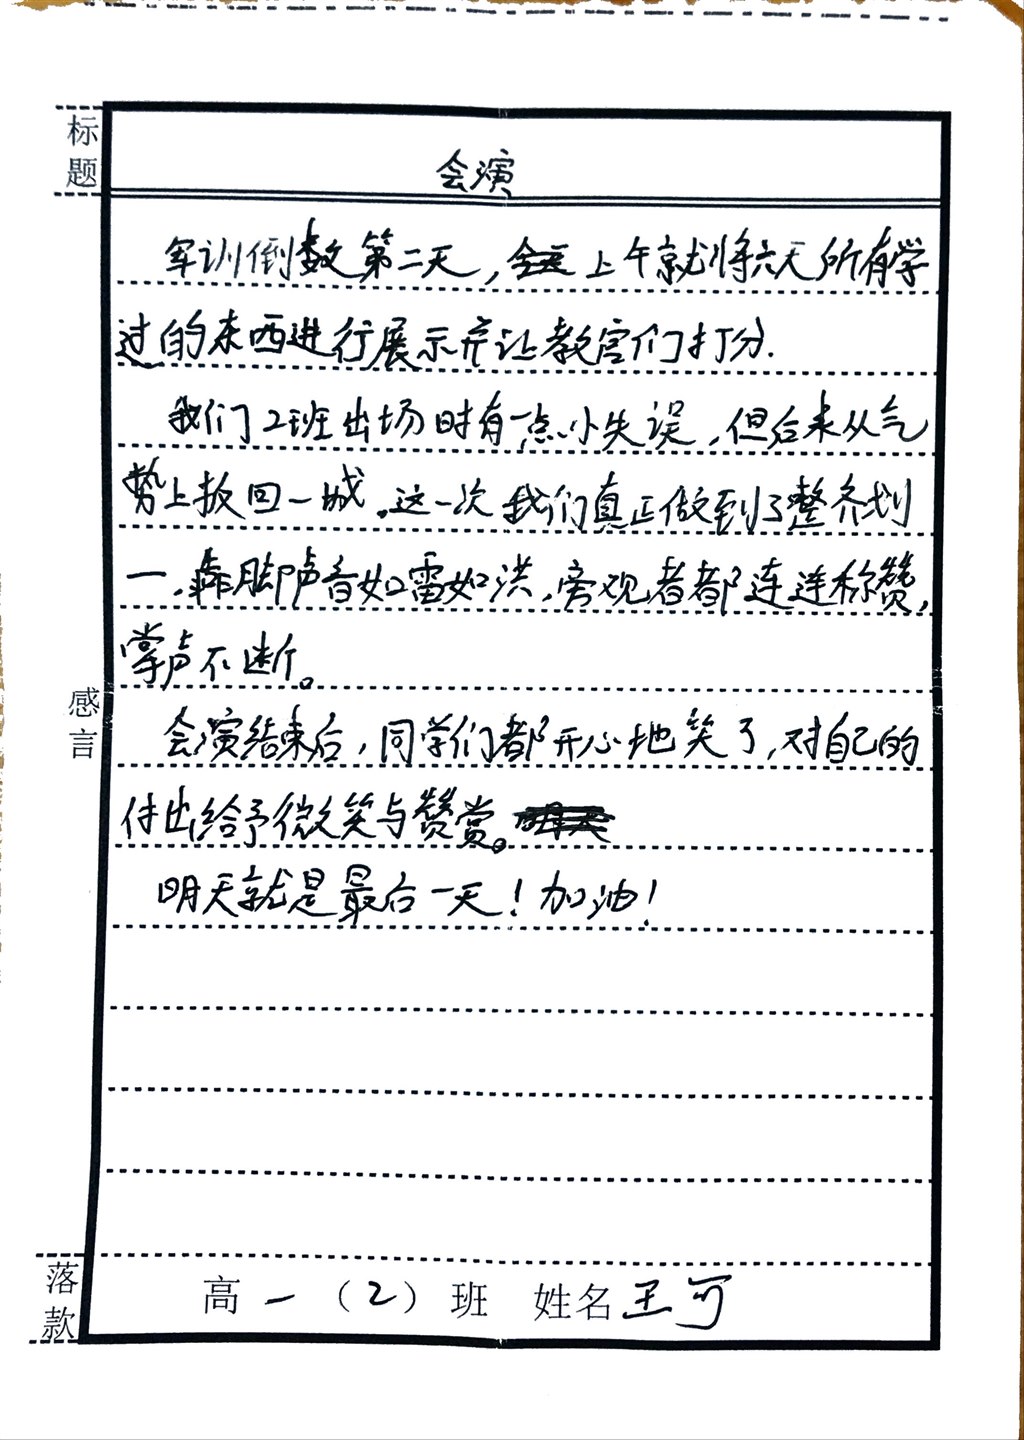 标题
会演
军训倒数第二天，上午就将六天所有学
过的东西进行展示并让教官们打分.
我们2班出场时有一点小失误，但后来从气
势上扳回一城。这一次我们真正做到了整齐划
一，靠脚声音如雷如洪，旁观者都连连称赞，
掌声不断。
感言
会演结束后，同学们都开心地笑了，对自己的
付出给予微笑与赞赏。
明天就是最后一天！加油！
落款
高一（2）班 姓名王可